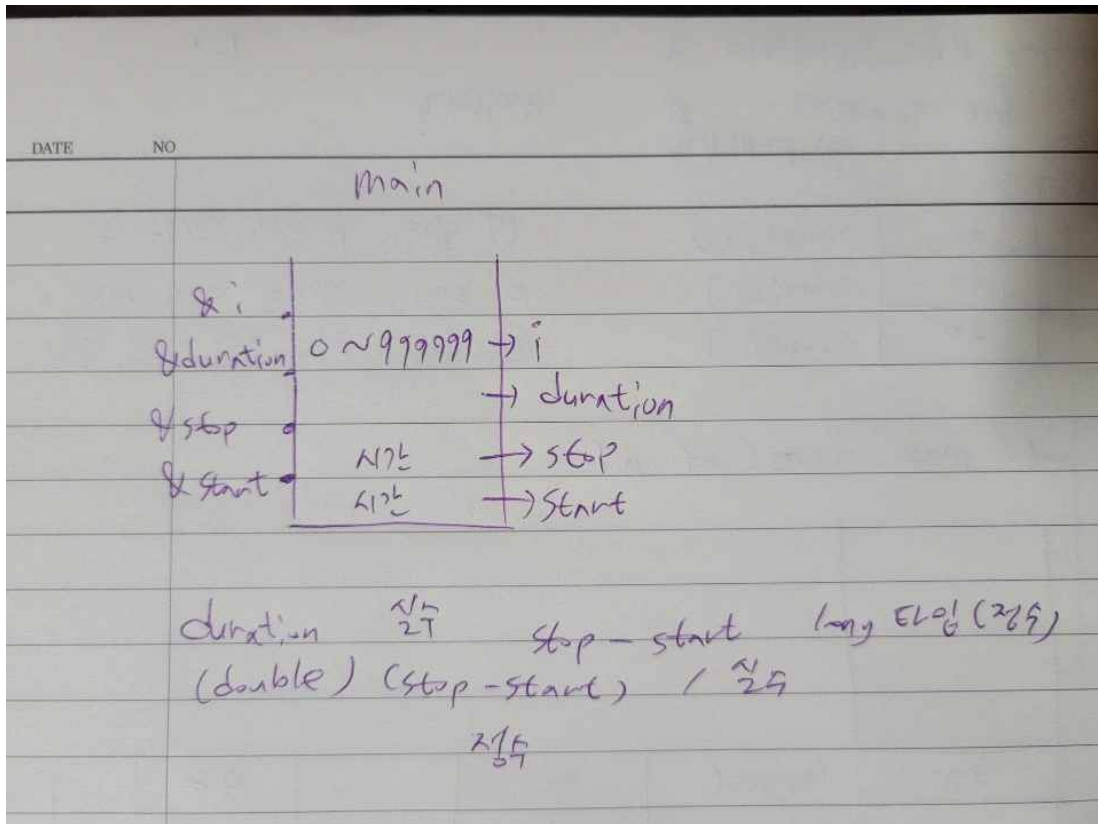 DATE NO
main
&i
&duration 0 ~ 999999 → i
→ duration
&stop
시간 → stop
&start
시간 → start
duration 실수 stop - start long 타입 (정수)
(double) (stop - start) / 실수
정수